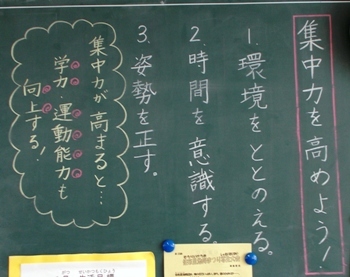 集中力を高めよう!
1.環境をととのえる。
2.時間を意識する。
3.姿勢を正す。
集中力が高まると…
学力、運動能力も
向上する!